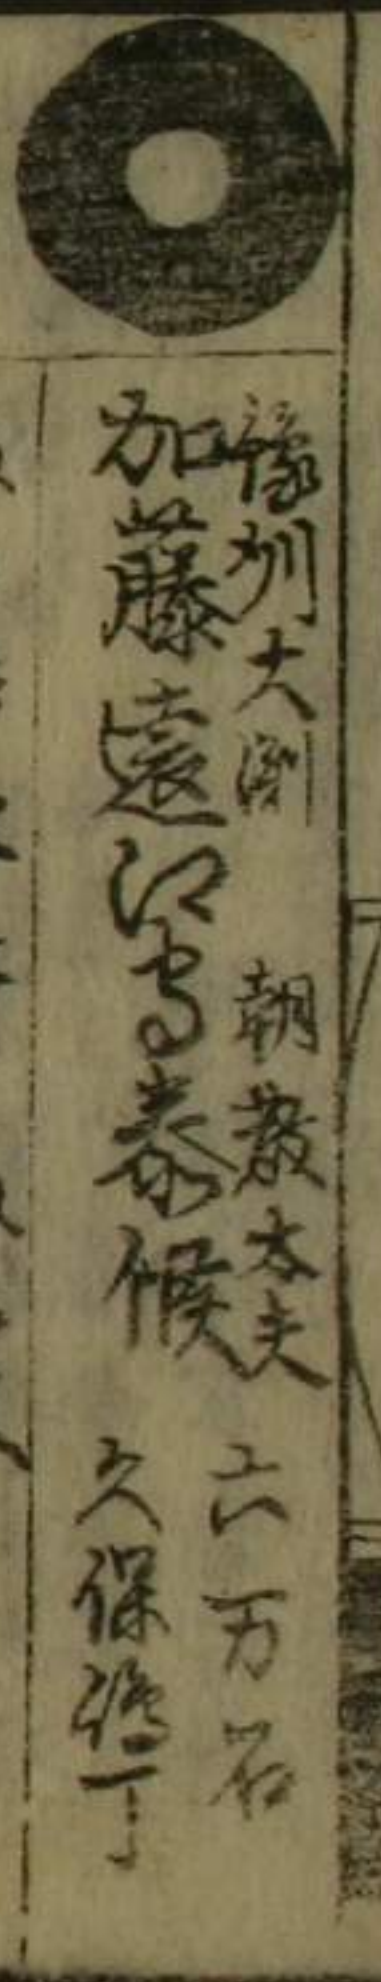 豫州大洲 朝散太夫 六万石
加藤遠江守泰候 久保町一丁